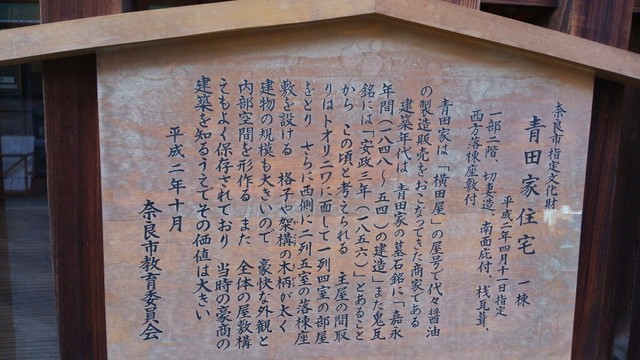 奈良市指定文化財
青田家住宅 一棟
平成二年四月十一日指定
一部二階、切妻造、南面庇付、桟瓦葺、
西方落棟座敷付
青田家は「横田屋」の屋号で代々醤油
の製造販売をおこなってきた商家である
建築年代は、青田家の墓石銘に「嘉永
年間(一八四八～五四)の建造」また鬼瓦
銘には「安政三年(一八五六)」とあること
から、この頃と考えられる 主屋の間取
りはトオリニワに面して一列四室の部屋
をとり さらに西側に二列五室の落棟座
敷を設ける 格子や架構の木柄が太く
建物の規模も大きいので 豪快な外観と
内部空間を形作る また 全体の屋敷構
えもよく保存されており 当時の豪商の
建築を知るうえでその価値は大きい
平成二年十月
奈良市教育委員会